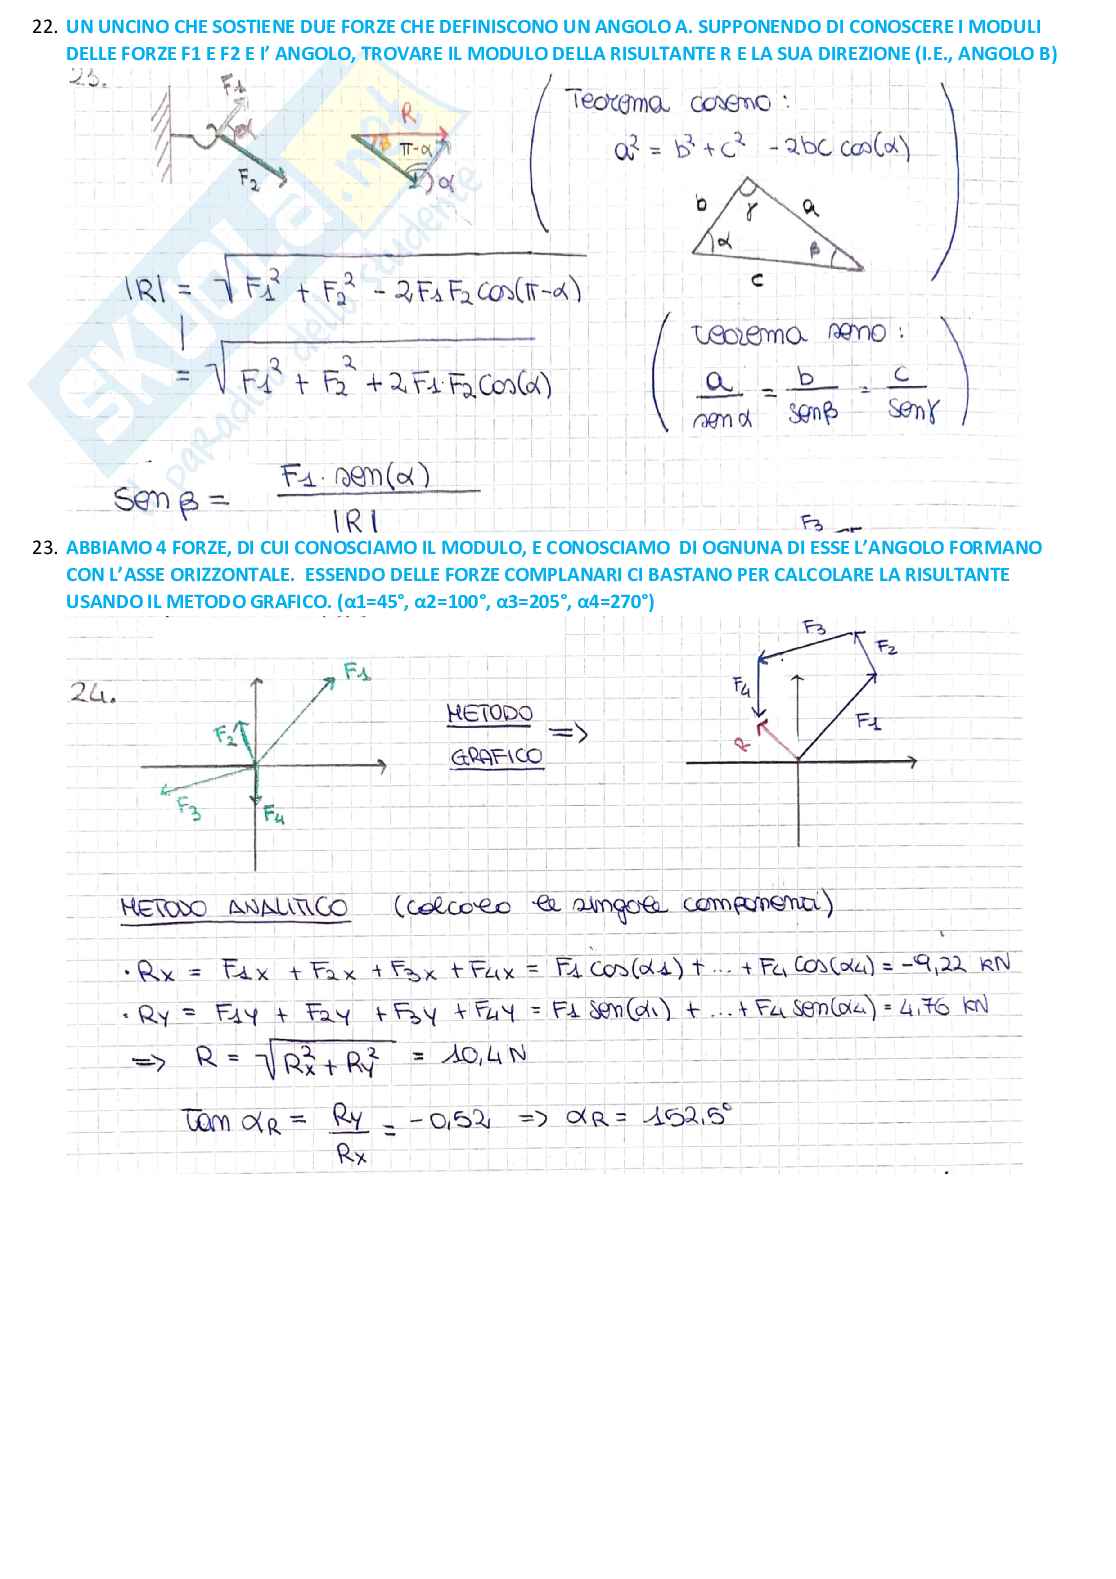 22. UN UNCINO CHE SOSTIENE DUE FORZE CHE DEFINISCONO UN ANGOLO A. SUPPONENDO DI CONOSCERE I MODULI
DELLE FORZE F1 E F2 E l' ANGOLO, TROVARE IL MODULO DELLA RISULTANTE R E LA SUA DIREZIONE (I.E., ANGOLO B)
23.
F1
α
F2
R
β
π-α
α
Teorema coseno:
a² = b² + c² - 2bc cos(α)
b γ a
α β
c
|R| = √(F1² + F2² - 2F1F2cos(π-α))
= √(F1² + F2² + 2F1·F2cos(α))
Teorema seno:
a/senα = b/senβ = c/senγ
Sen β = F1·sen(α)/|R|
SKUOLA.net
il paradiso dello studente
F3
23. ABBIAMO 4 FORZE, DI CUI CONOSCIAMO IL MODULO, E CONOSCIAMO DI OGNUNA DI ESSE L'ANGOLO FORMANO
CON L'ASSE ORIZZONTALE. ESSENDO DELLE FORZE COMPLANARI CI BASTANO PER CALCOLARE LA RISULTANTE
USANDO IL METODO GRAFICO. (α1=45°, α2=100°, α3=205°, α4=270°)
24.
F1
F2
F3
F4
METODO
GRAFICO =>
F3
F2
F4
F1
R
METODO ANALITICO (calcolo le singole componenti)
· Rx = F1x + F2x + F3x + F4x = F1 cos(α1) + ... + F4 cos(α4) = -9,22 kN
· Ry = F1y + F2y + F3y + F4y = F1 sen(α1) + ... + F4 sen(α4) = 4,76 kN
=> R = √(Rx² + Ry²) = 10,4 N
tan αR = Ry/Rx = -0,52 => αR = 152,5°